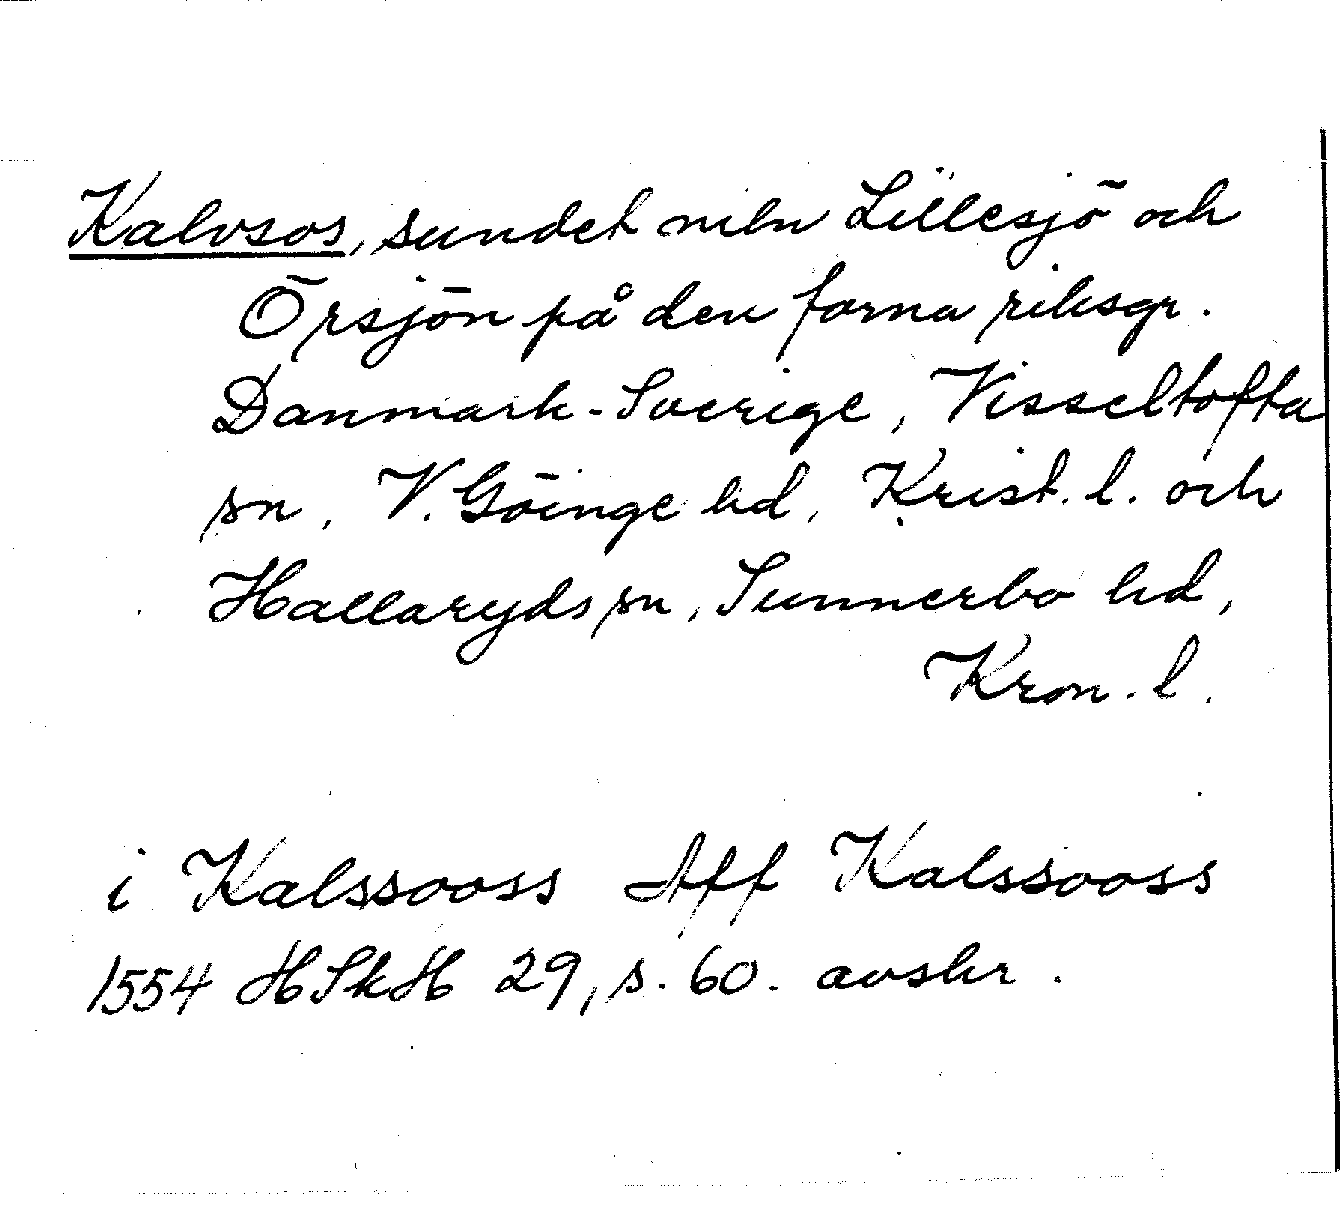 Kalvsos, sundet mln Lillesjö och
Örsjön på den forna riksgr.
Danmark-Sverige, Visseltofta
sn, V. Göinge hd, Krist. l. och
Hallaryds sn, Sunnerbo hd,
Kron. l.
i Kalssooss Aff Kalssooss
1554 HSkH 29, s. 60. avskr.